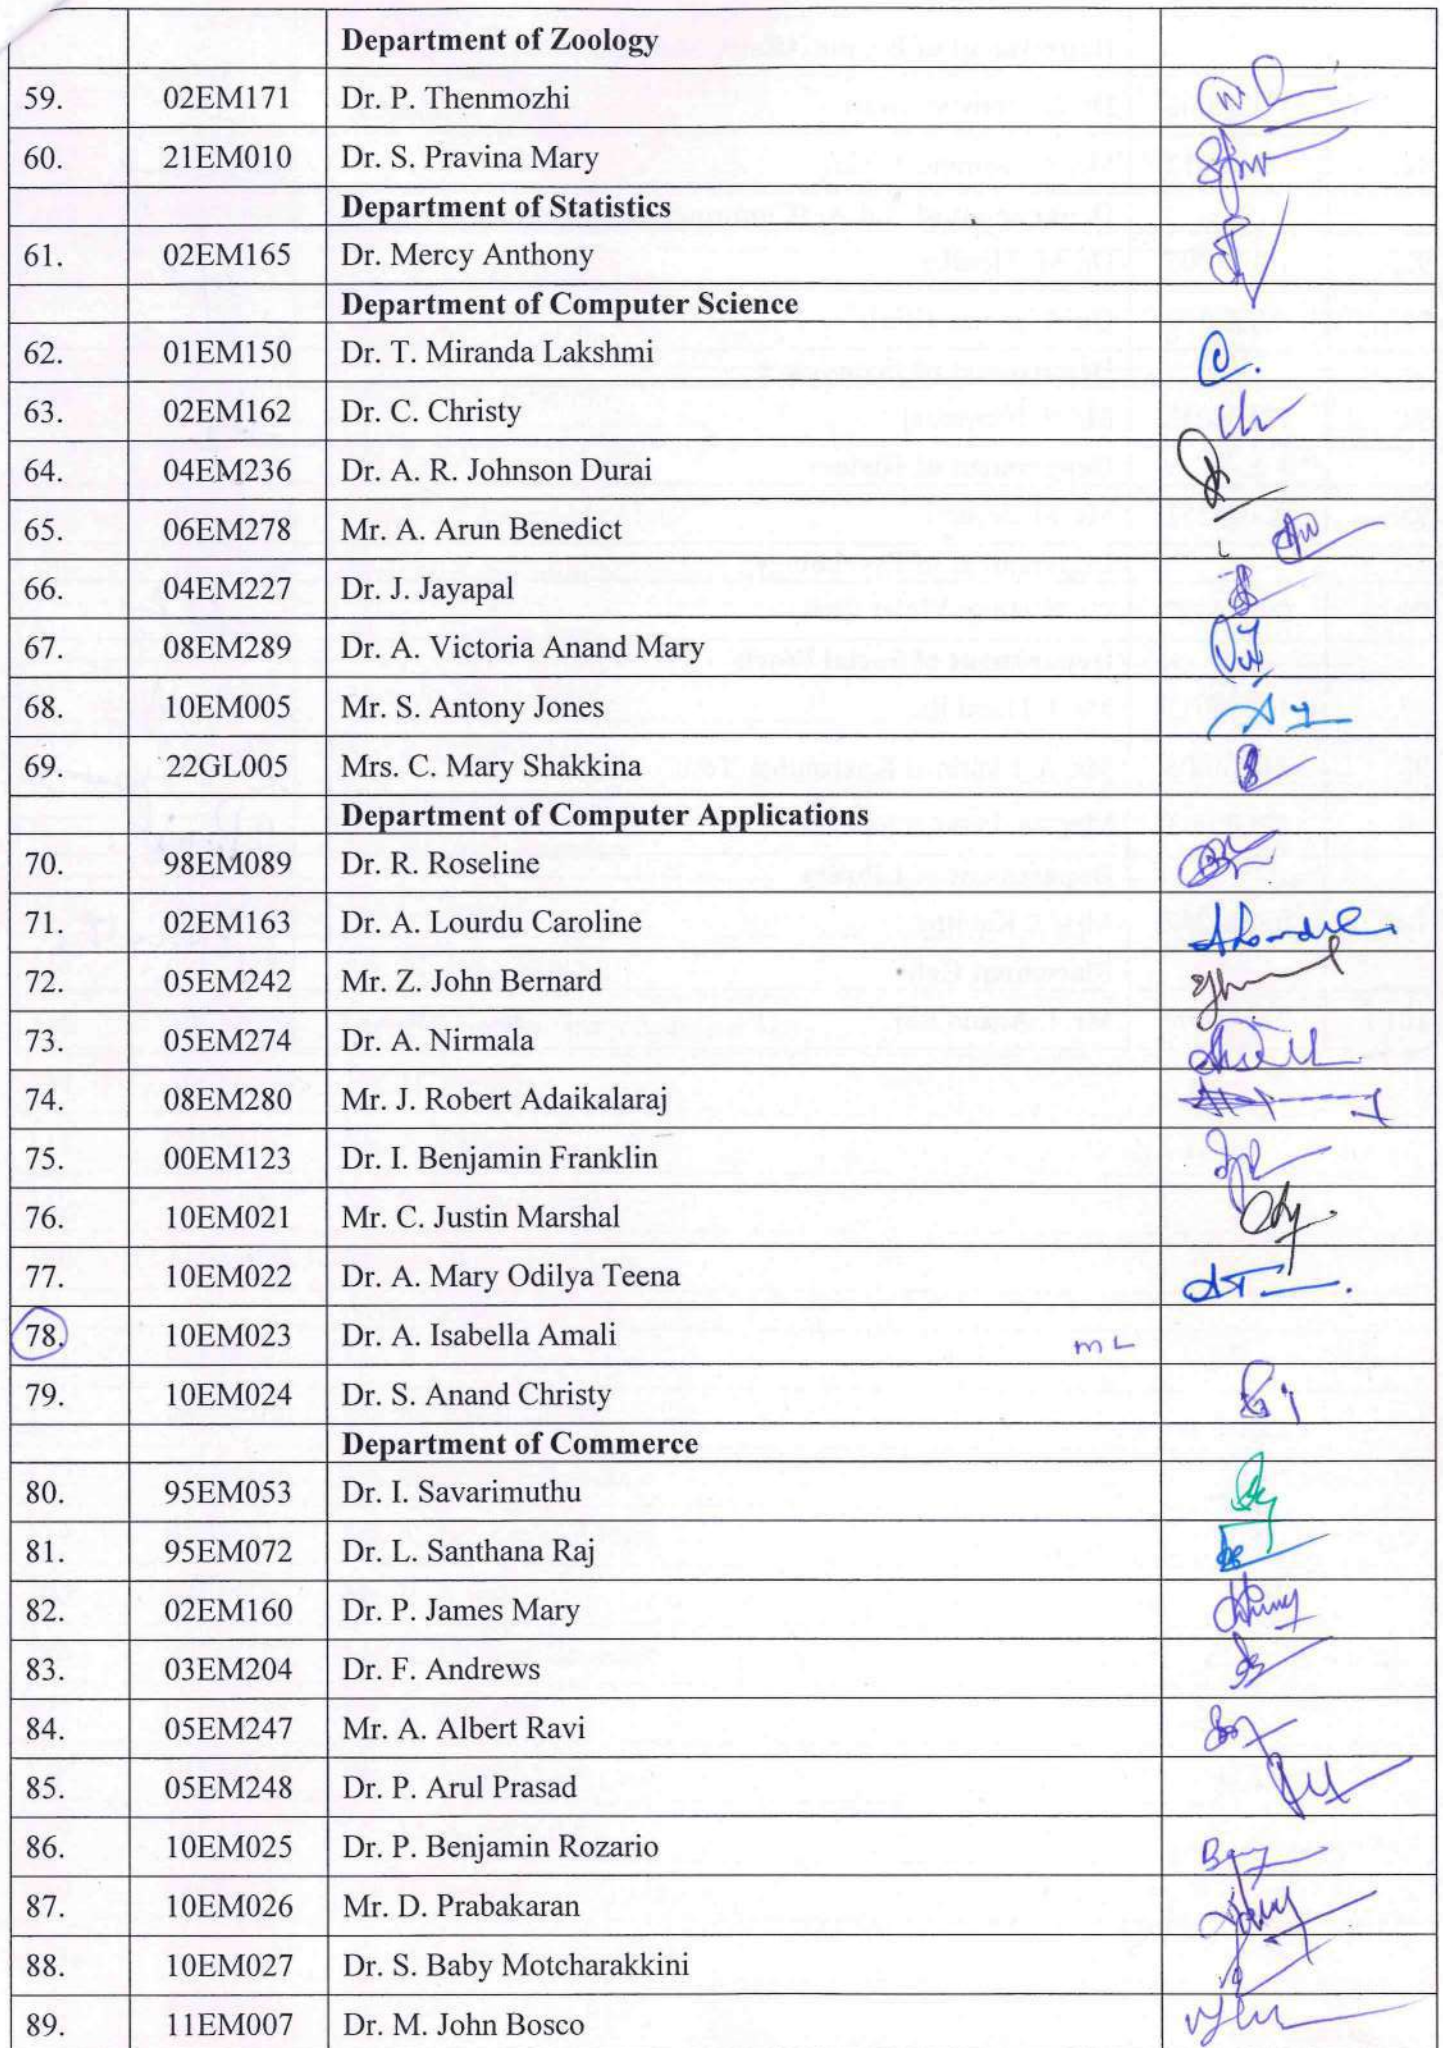 Department of Zoology
59. 02EM171 Dr. P. Thenmozhi
60. 21EM010 Dr. S. Pravina Mary
Department of Statistics
61. 02EM165 Dr. Mercy Anthony
Department of Computer Science
62. 01EM150 Dr. T. Miranda Lakshmi
63. 02EM162 Dr. C. Christy
64. 04EM236 Dr. A. R. Johnson Durai
65. 06EM278 Mr. A. Arun Benedict
66. 04EM227 Dr. J. Jayapal
67. 08EM289 Dr. A. Victoria Anand Mary
68. 10EM005 Mr. S. Antony Jones
69. 22GL005 Mrs. C. Mary Shakkina
Department of Computer Applications
70. 98EM089 Dr. R. Roseline
71. 02EM163 Dr. A. Lourdu Caroline
72. 05EM242 Mr. Z. John Bernard
73. 05EM274 Dr. A. Nirmala
74. 08EM280 Mr. J. Robert Adaikalaraj
75. 00EM123 Dr. I. Benjamin Franklin
76. 10EM021 Mr. C. Justin Marshal
77. 10EM022 Dr. A. Mary Odilya Teena
78. 10EM023 Dr. A. Isabella Amali ML
79. 10EM024 Dr. S. Anand Christy
Department of Commerce
80. 95EM053 Dr. I. Savarimuthu
81. 95EM072 Dr. L. Santhana Raj
82. 02EM160 Dr. P. James Mary
83. 03EM204 Dr. F. Andrews
84. 05EM247 Mr. A. Albert Ravi
85. 05EM248 Dr. P. Arul Prasad
86. 10EM025 Dr. P. Benjamin Rozario
87. 10EM026 Mr. D. Prabakaran
88. 10EM027 Dr. S. Baby Motcharakkini
89. 11EM007 Dr. M. John Bosco